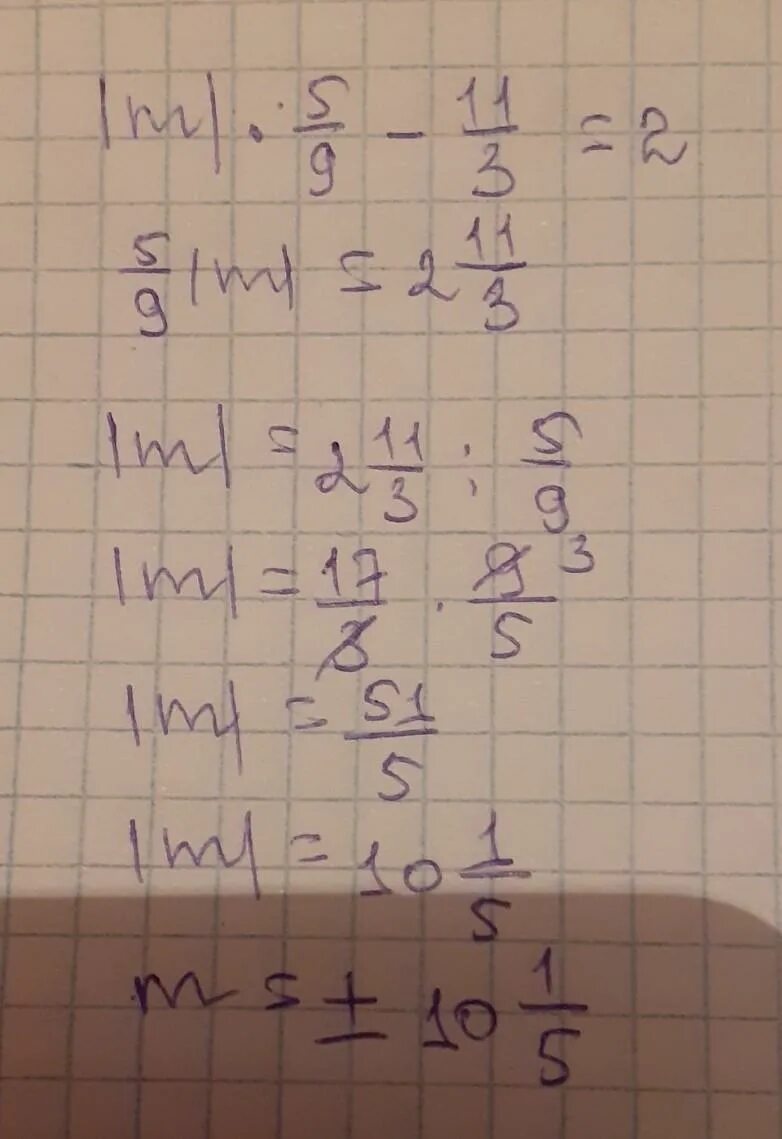 |m| · 5/9 - 11/3 = 2
5/9 |m| = 2 11/3
|m| = 2 11/3 : 5/9
|m| = 17/3 · 9/5 3
|m| = 51/5
|m| = 10 1/5
m = ± 10 1/5